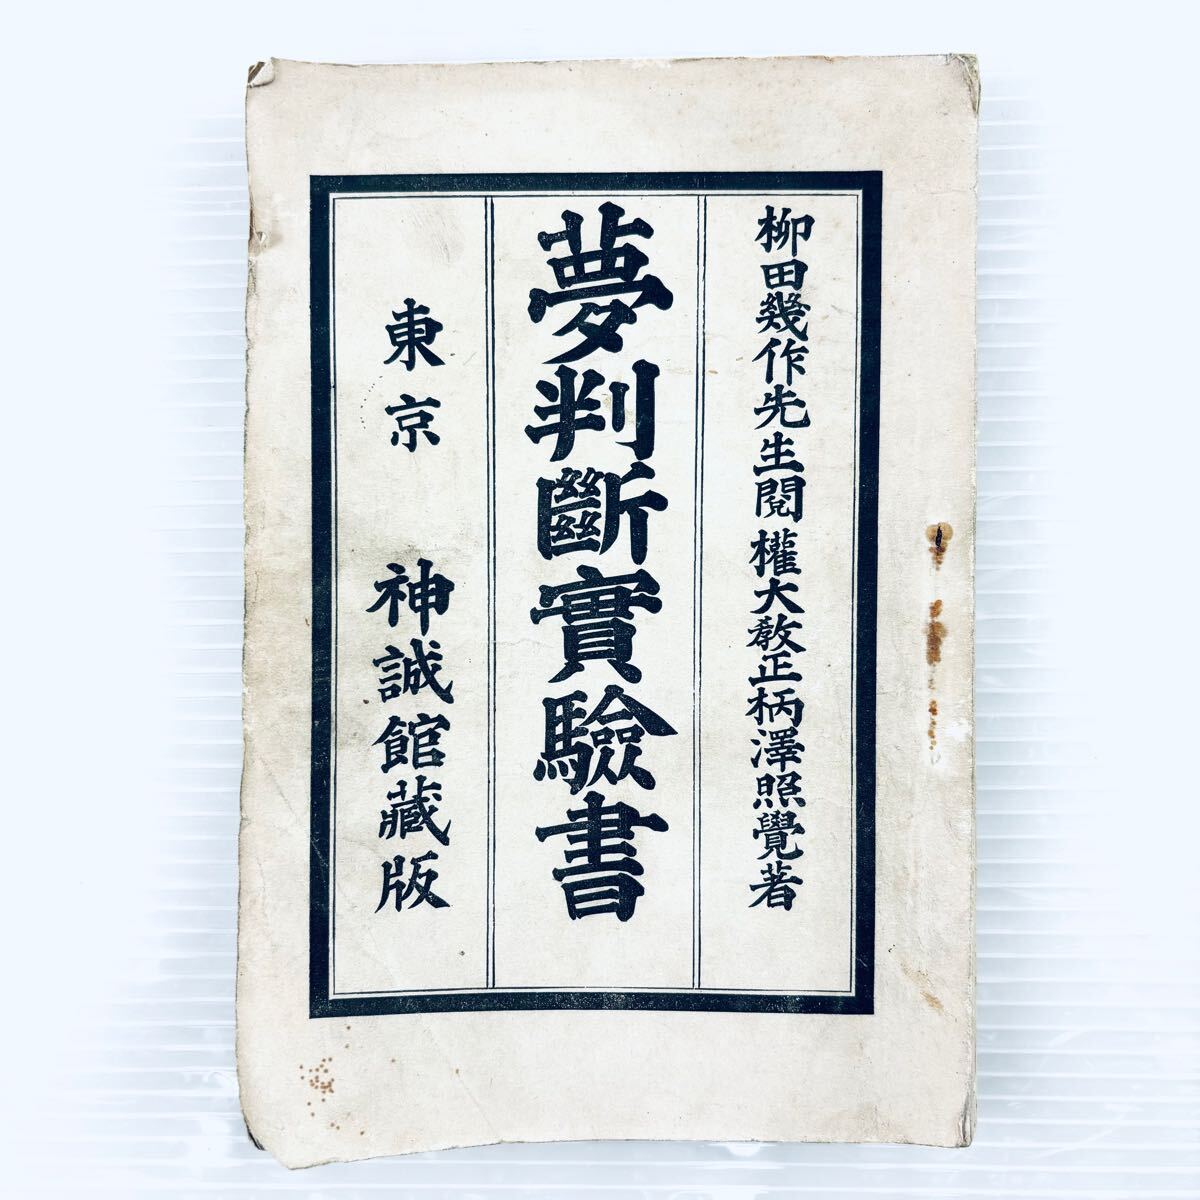 柳田幾作先生閲 權大敎正柄澤照覺著
夢判斷實驗書
東京 神誠館藏版